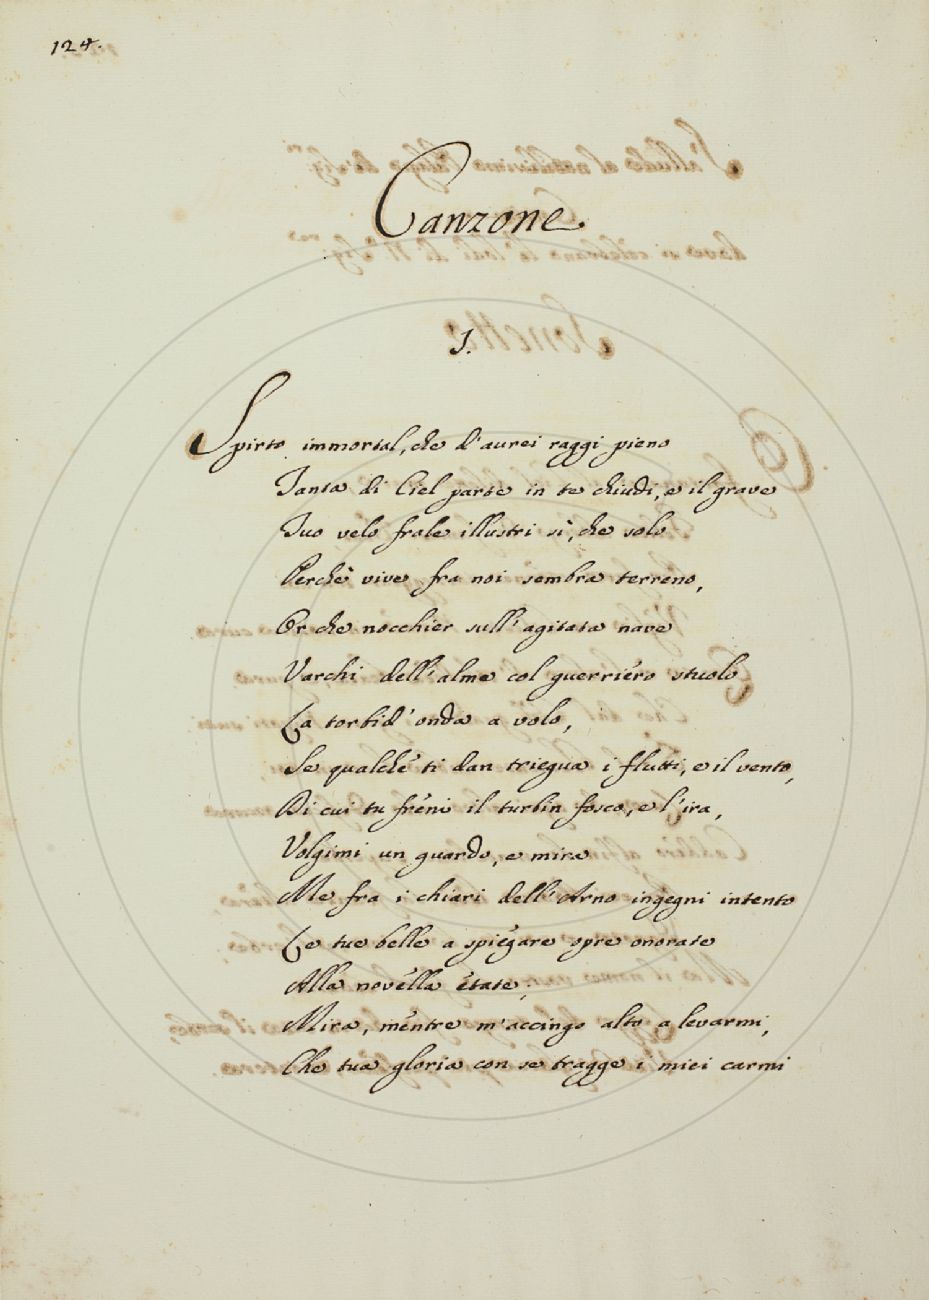 124.
Canzone
I.
Spirto immortal, che d'aurei raggi pieno
Tanta di Ciel parte in te chiudi, e il grave
Tuo velo frale illustri sì, che solo
Perchè vive fra noi sembra terreno,
Or che nocchier sull'agitata nave
Varchi dell'alme col guerriero stuolo
La torbid'onda a volo,
Se qualche ti dan triegua i flutti, e il vento,
Di cui tu freni il turbin fosco, e l'ira,
Volgimi un guardo, e mira
Me fra i chiari dell'Arno ingegni intento
Le tue belle a spiegare opre onorate
Alla novella etate;
Mira, mentre m'accingo alto a levarmi,
Che tua gloria con se tragge i miei carmi